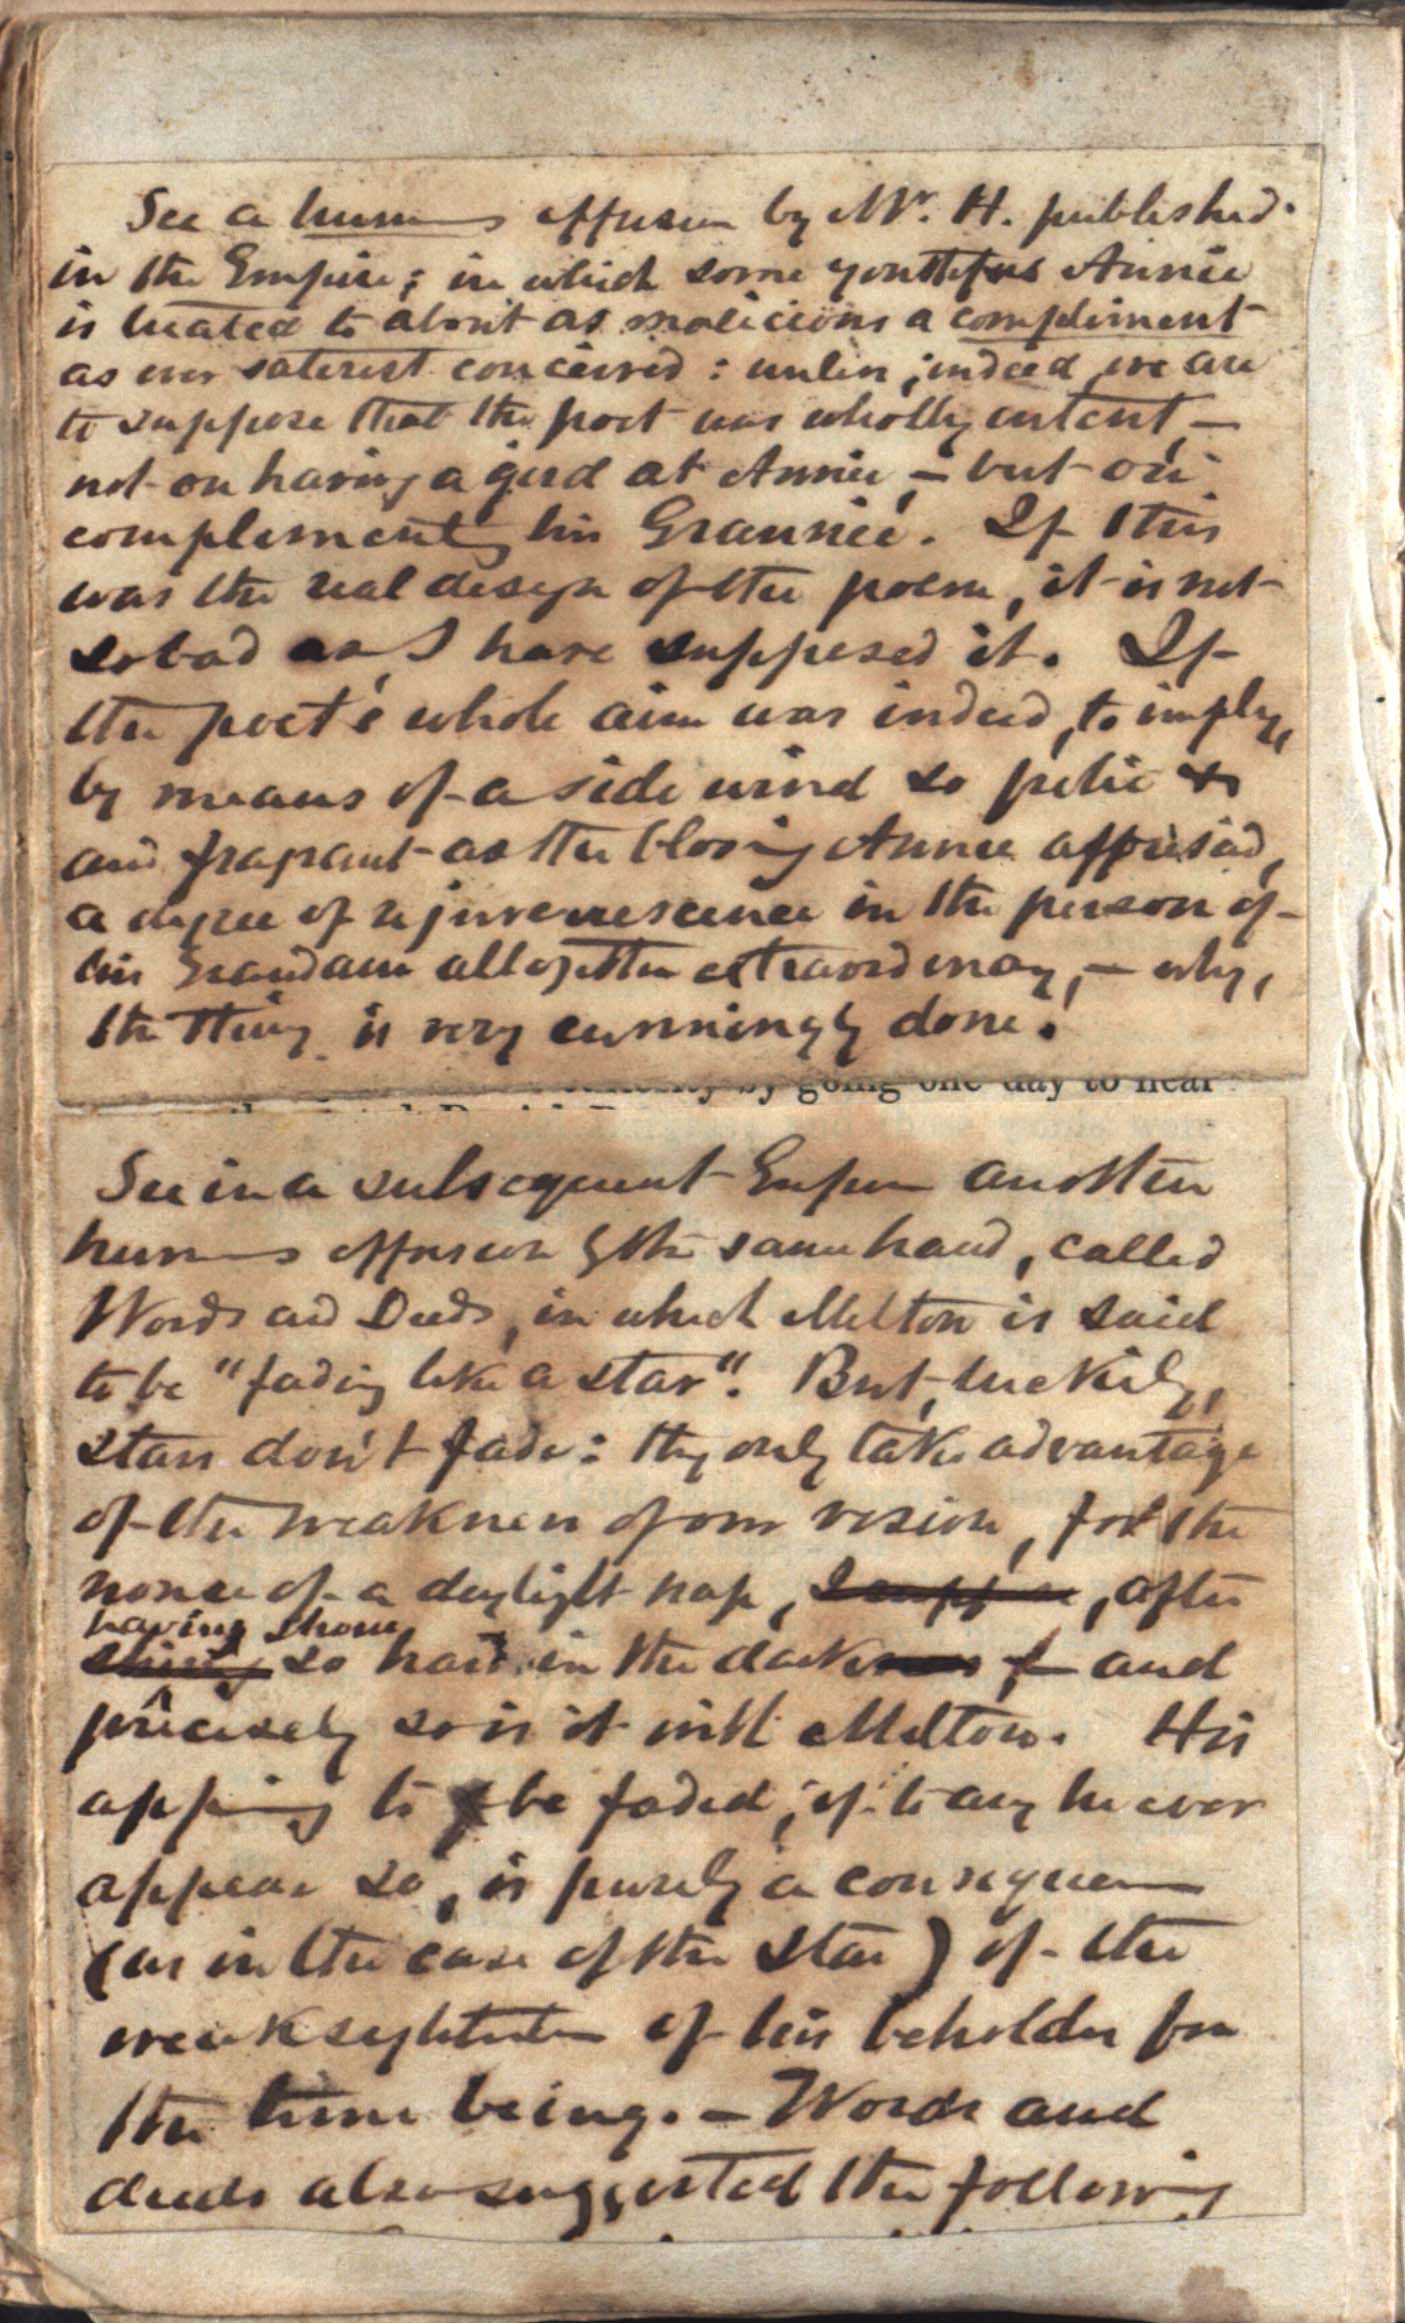 See a humous effusion by Mr. H. published
in the Empire; in which some youthful Annie
is treated to about as malicious a compliment
as ever saterist conceived: unless, indeed, we are
to suppose that the poet was wholly intent, —
not on having a gird at Annie, — but on
complimenting his Grannie. If this
was the real design of the poem, it is not
so bad as I have supposed it. If
the poet's whole aim was indeed, to imply,
by means of a side wind so
and fragrant as the blowing Annie
a degree of rejuvenescence in the person of
his Grandam altogether extraordinary, — why,
the thing is very cunningly done.
by going one day to hear
See in a subsequent Empire another
humous effusion by the same hand, called
Words and Deeds, in which Milton is said
to be "fading like a star". But, luckily,
stars don't fade: they only take advantage
of the weakness of our vision, for the
nonce of a daylight nap, I suppose, after
having shone
shining so hard in the darkness & and
precisely so is it with Milton. His
appearing to be faded, if to any he ever
appear so, is purely a consequence
(as in the case of the star) of the
weaksightedness of his beholder for
the time being. — Words and
deeds also suggested the following